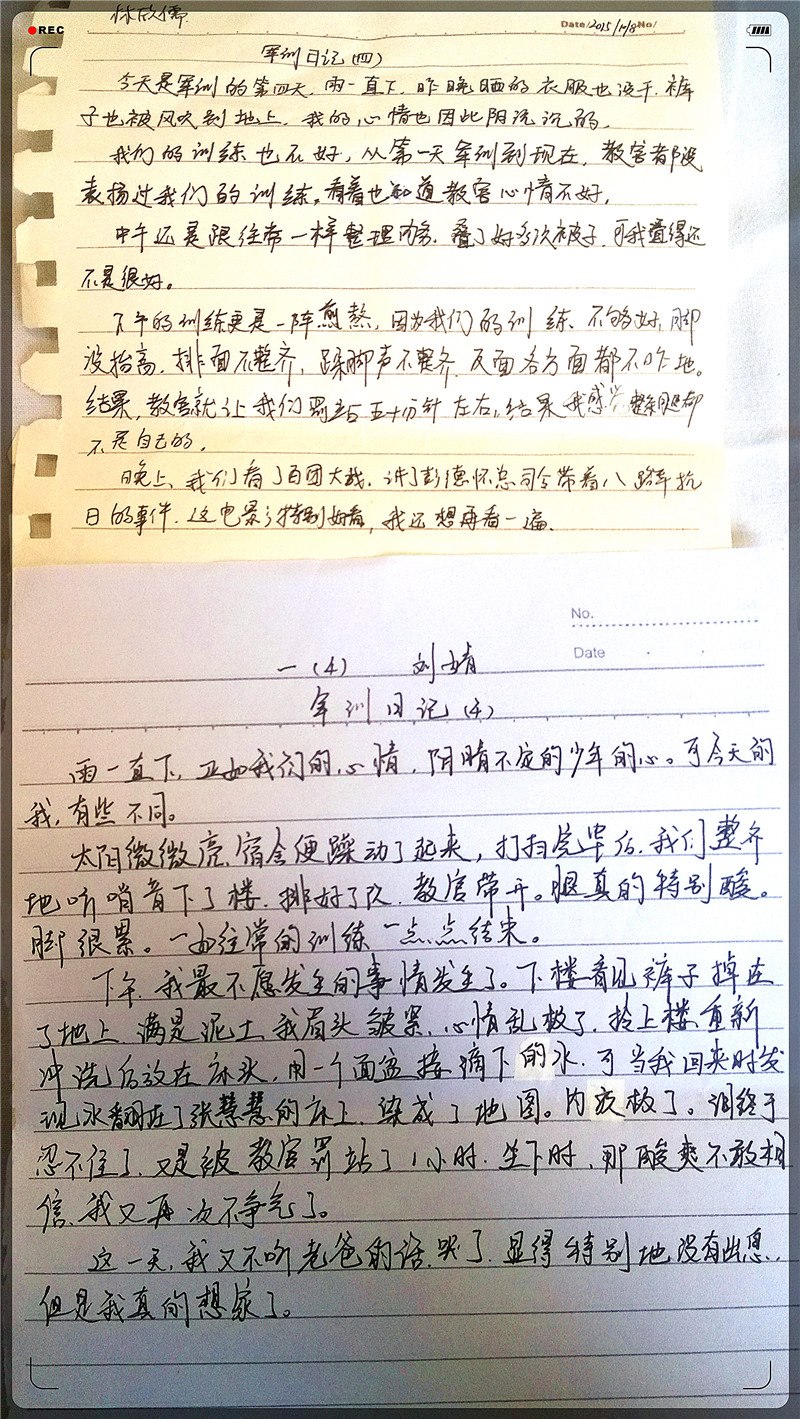 REC
林欣儒
Date/2015/10/8 No/
军训日记(四)
今天是军训的第四天,雨一直下,昨晚晒的衣服也没干,裤
子也被风吹到地上,我的心情也因此阴沉沉的。
我们的训练也不好,从第一天军训到现在,教官都没
表扬过我们的训练。看着也知道教官心情不好。
中午还是跟往常一样整理内务,叠了好多次被子,可我觉得还
不是很好。
下午的训练更是一阵煎熬,因为我们的训练不够好,脚
没抬高,排面不整齐,跺脚声不整齐,反面各方面都不咋地。
结果,教官就让我们罚站五十分钟左右,结果我感觉整条腿都
不是自己的。
晚上,我们看了百团大战,讲了彭德怀总司令带着八路军抗
日的事件,这电影特别好看,我还想再看一遍。
No.
Date
一(4) 刘婧
军训日记(4)
雨一直下,正如我们的心情,阴晴不定的少年的心。可今天的
我,有些不同。
太阳微微亮,宿舍便躁动了起来,打扫完毕后,我们整齐
地听哨音下了楼,排好了队,教官带开。腿真的特别酸。
脚很累。一如往常的训练一点点结束。
下午,我最不愿发生的事情发生了。下楼看见裤子掉在
了地上,满是泥土,我眉头皱紧,心情乱极了,拎上楼重新
冲洗后放在床头,用一个面盆接滴下的水,可当我回来时发
现水翻在了张慧慧的床上,染成了地图。内疚极了。泪终于
忍不住了,又是被教官罚站了1小时,坐下时,那酸爽不敢相
信,我又再次不争气了。
这一天,我又不听老爸的话,哭了,显得特别地没有出息,
但是我真的想家了。